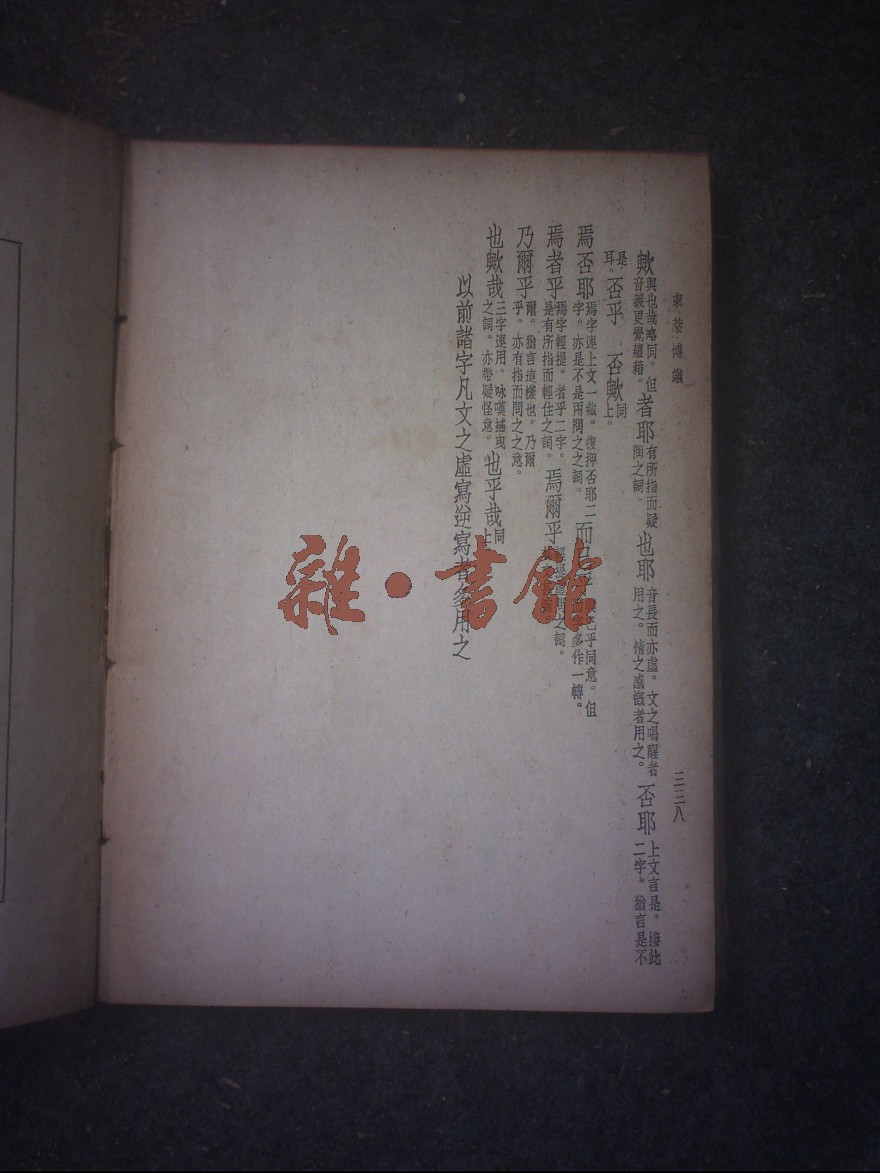 東萊博議
三三八
歟與也哉略同。但音義更覺蘊藉。者耶有所指而疑問之詞。也耶音長而亦虛。文之喝醒者用之。情之感慨者用之。否耶上文言是。接此二字。猶言是不
是耳。否乎 否歟同上。
焉否耶焉字連上文一截。復押否耶二字。亦是不是兩問之之詞。而已乎同意。但多作一轉。
焉者乎焉字輕提。者乎二字。是有所指而輕住之詞。焉爾乎之詞。
乃爾乎爾。猶言這樣也。乃爾乎。亦有指而問之之意。
也歟哉三字連用。咏嘆搖曳之詞。亦帶疑怪意。也乎哉同上
以前諸字凡文之虛寫逆寫者多用之
雜·書館